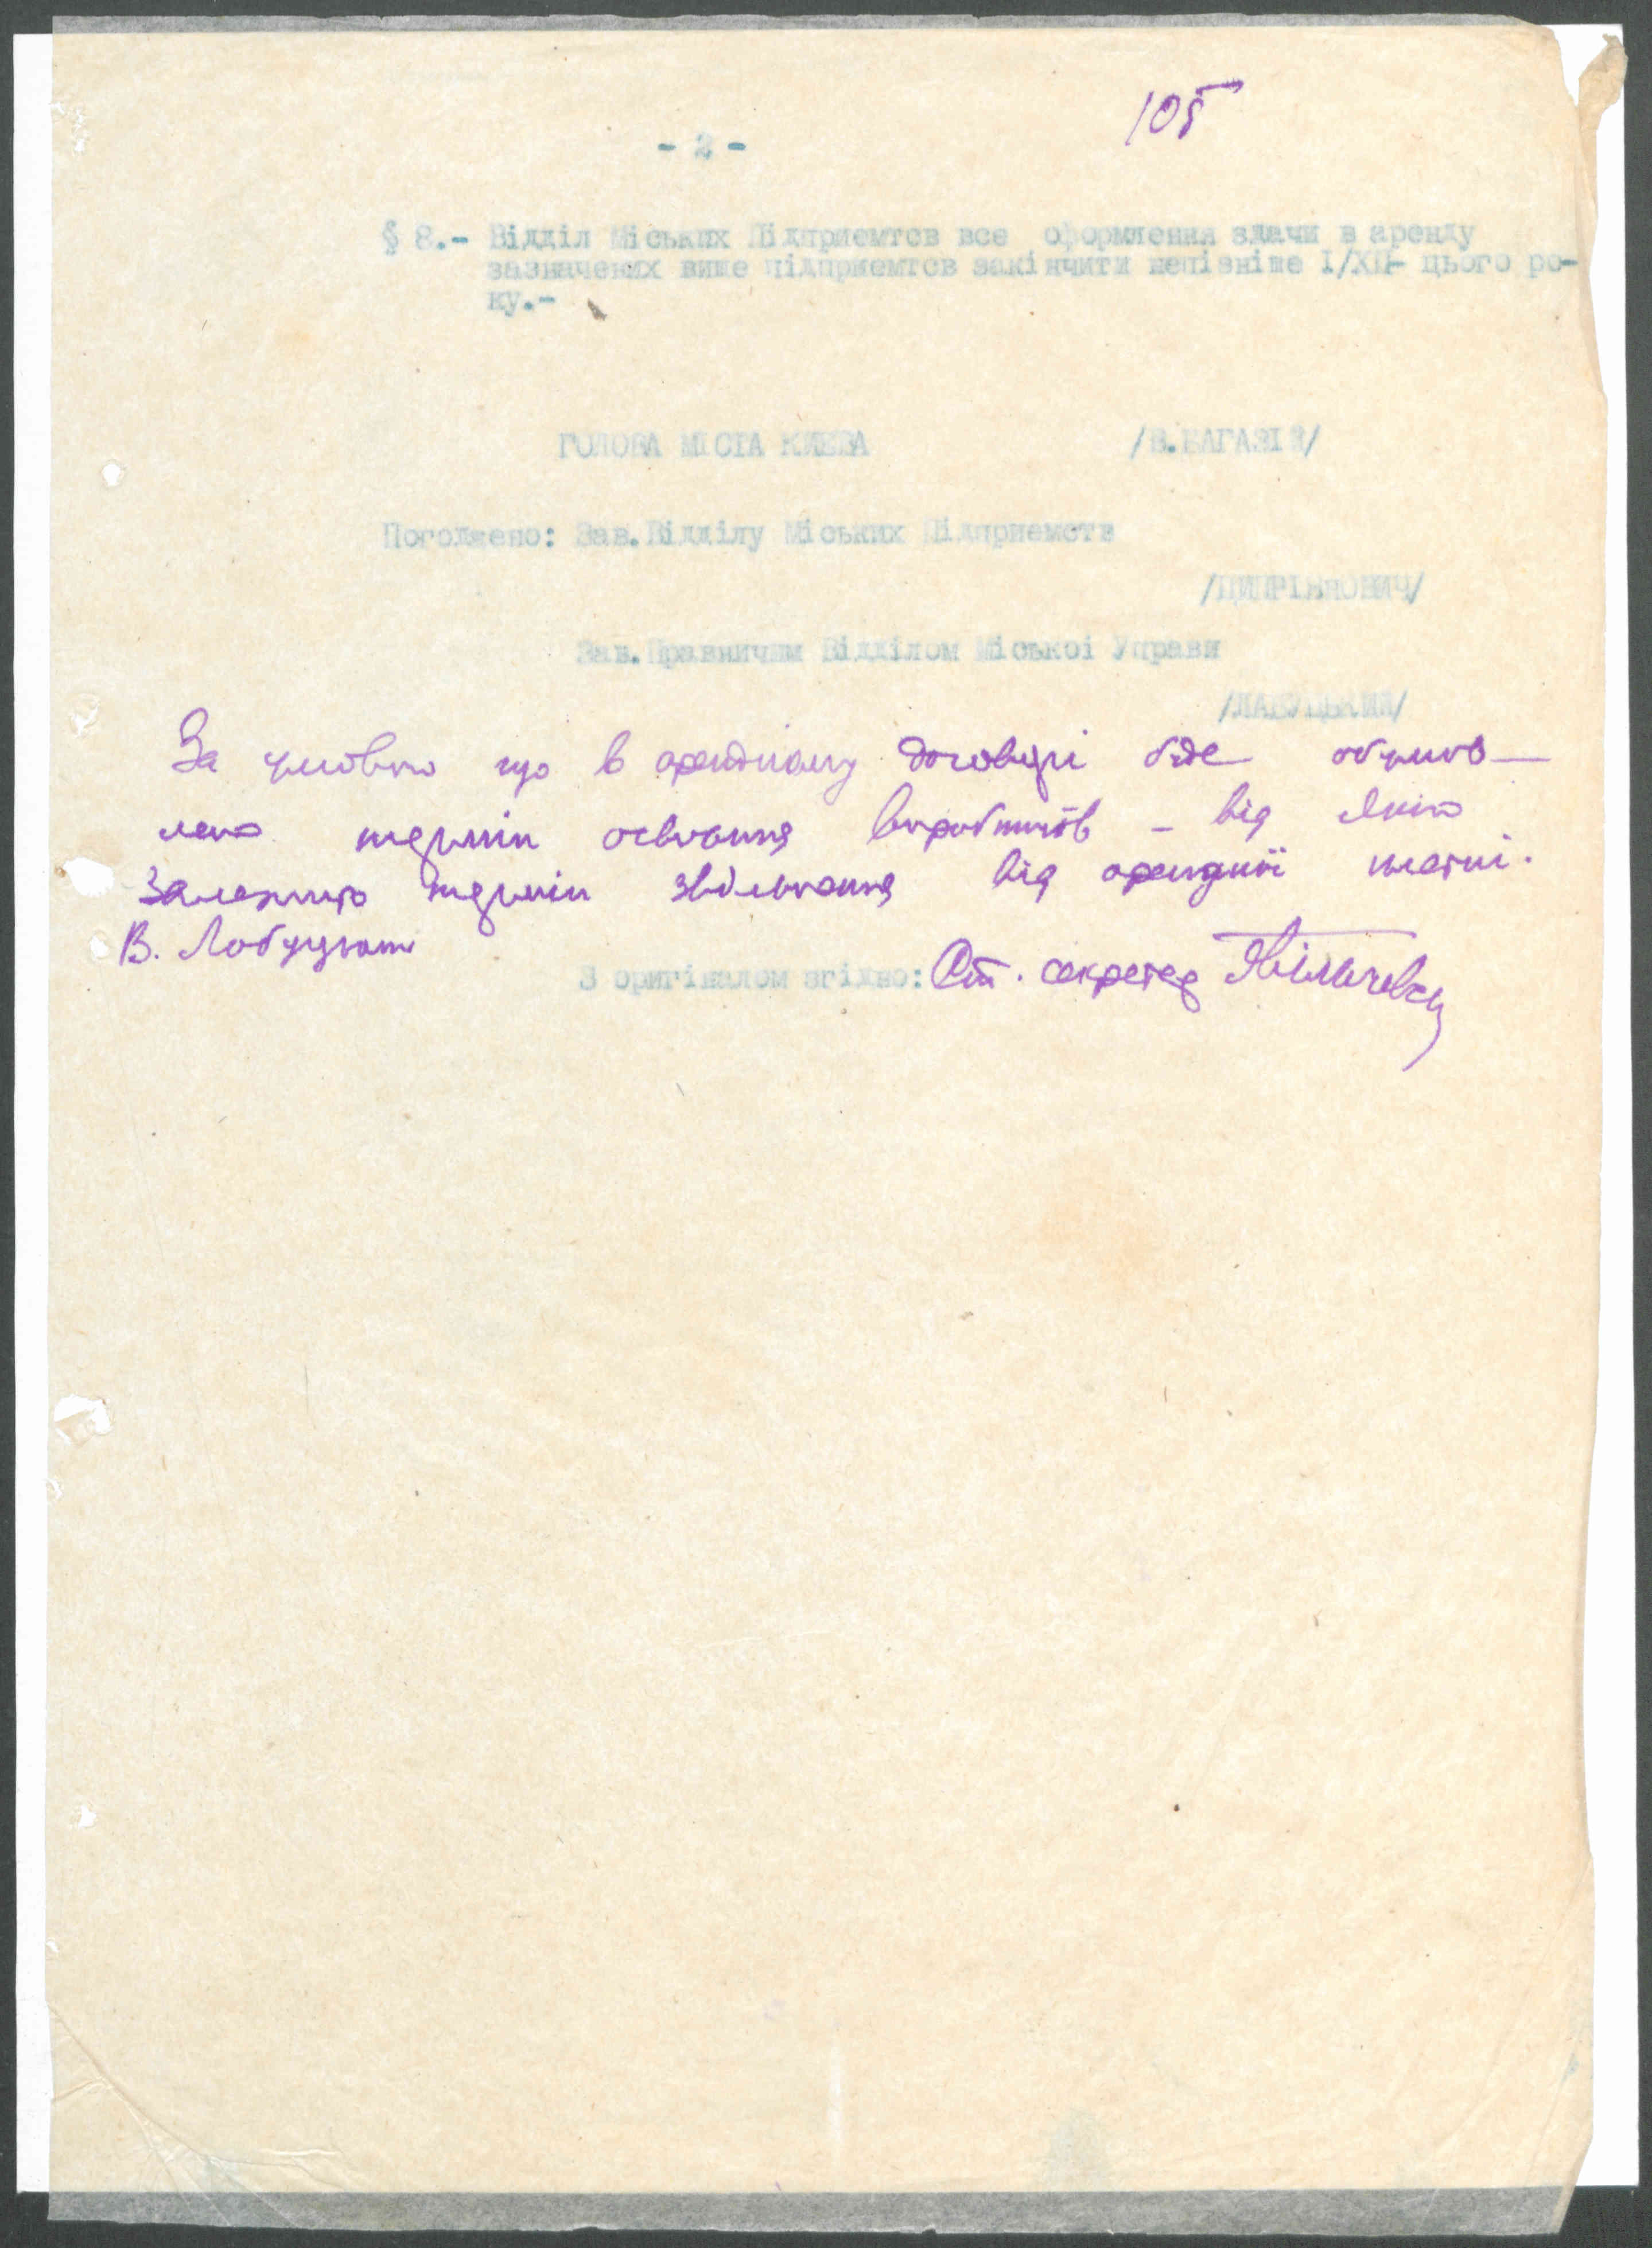 105
- 2 -
§ 8.- Відділ Міських Підприемтсв все оформлення здачи в аренду
зазначених вище підприемтсв закінчити непізніше І/ХІІ- цього ро-
ку.-
ГОЛОВА МІСТА КИЕВА /В.БАГАЗІЙ/
Погоджено: Зав.Відділу Міських Підприемств
/ЦИПРІЯНОВИЧ/
Зав.Правничим Відділом Міської Управи
/ЛАБУЦЬКИЙ/
За умовою що в арендному договорі буде обумов-
лено термін освоення виробництв - від якого
залежить термін звільнення від арендної платні.
В. Лабуцький
З оригіналом згідно: От. секретар